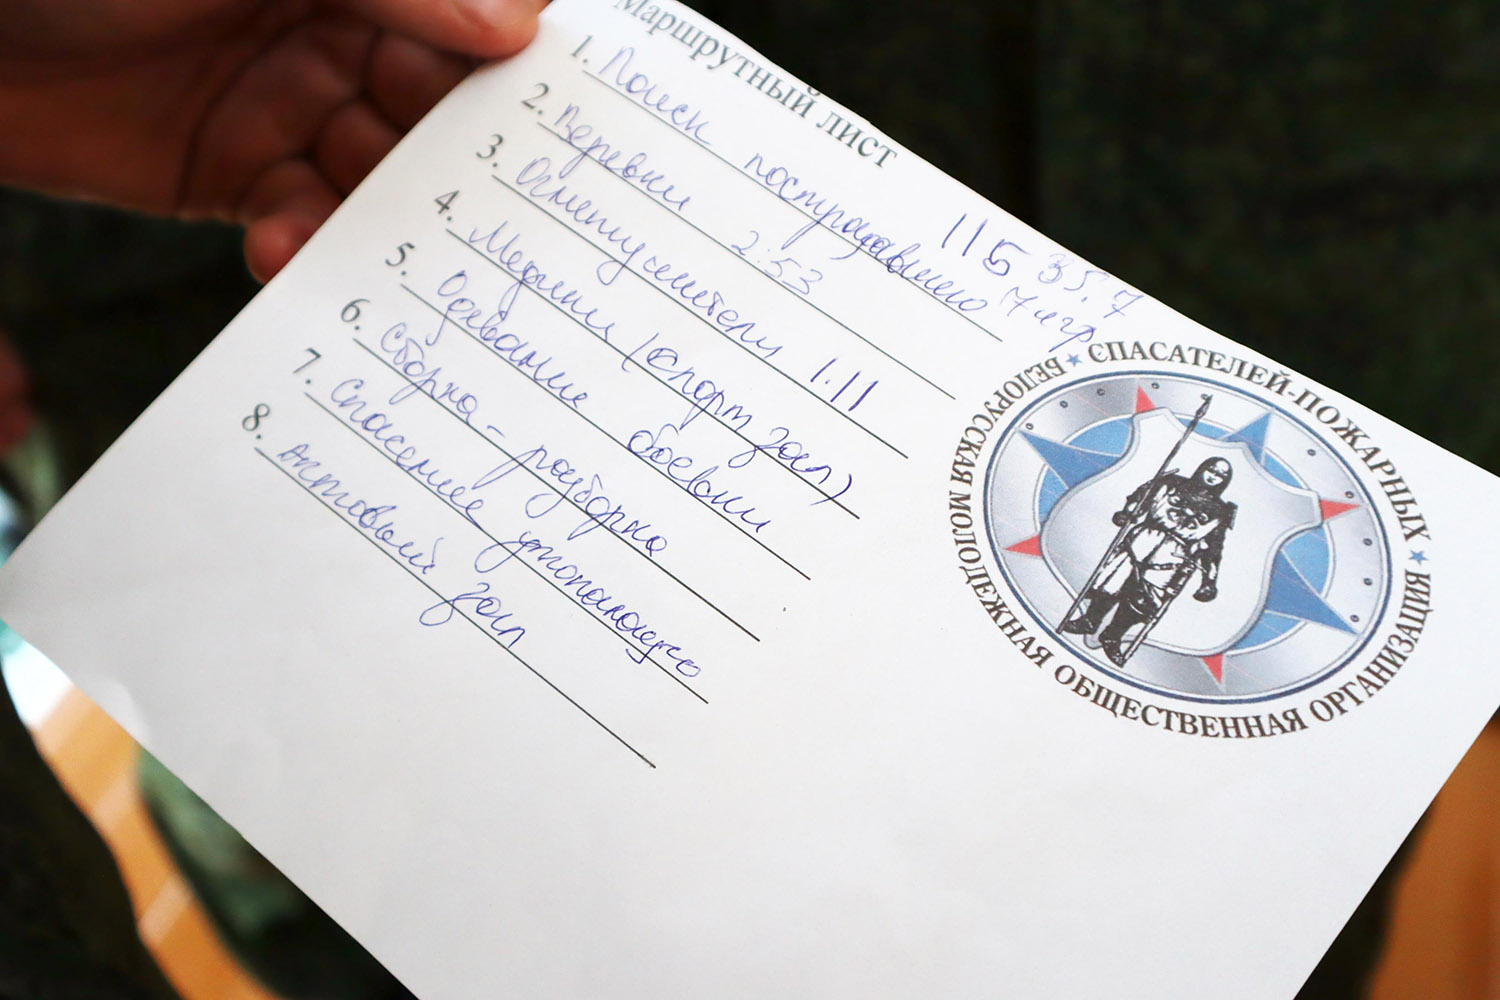 Маршрутный лист
1. Поиск пострадавшего 115 35,7
2. Веревки 2:53
3. Огнетушители 1.11
4. Медики (спорт зал)
5. Одевание боевки
6. Сборка - разборка
7. Спасение утопающего
8. Актовый зал
БЕЛОРУССКАЯ МОЛОДЕЖНАЯ ОБЩЕСТВЕННАЯ ОРГАНИЗАЦИЯ ★ СПАСАТЕЛЕЙ-ПОЖАРНЫХ ★